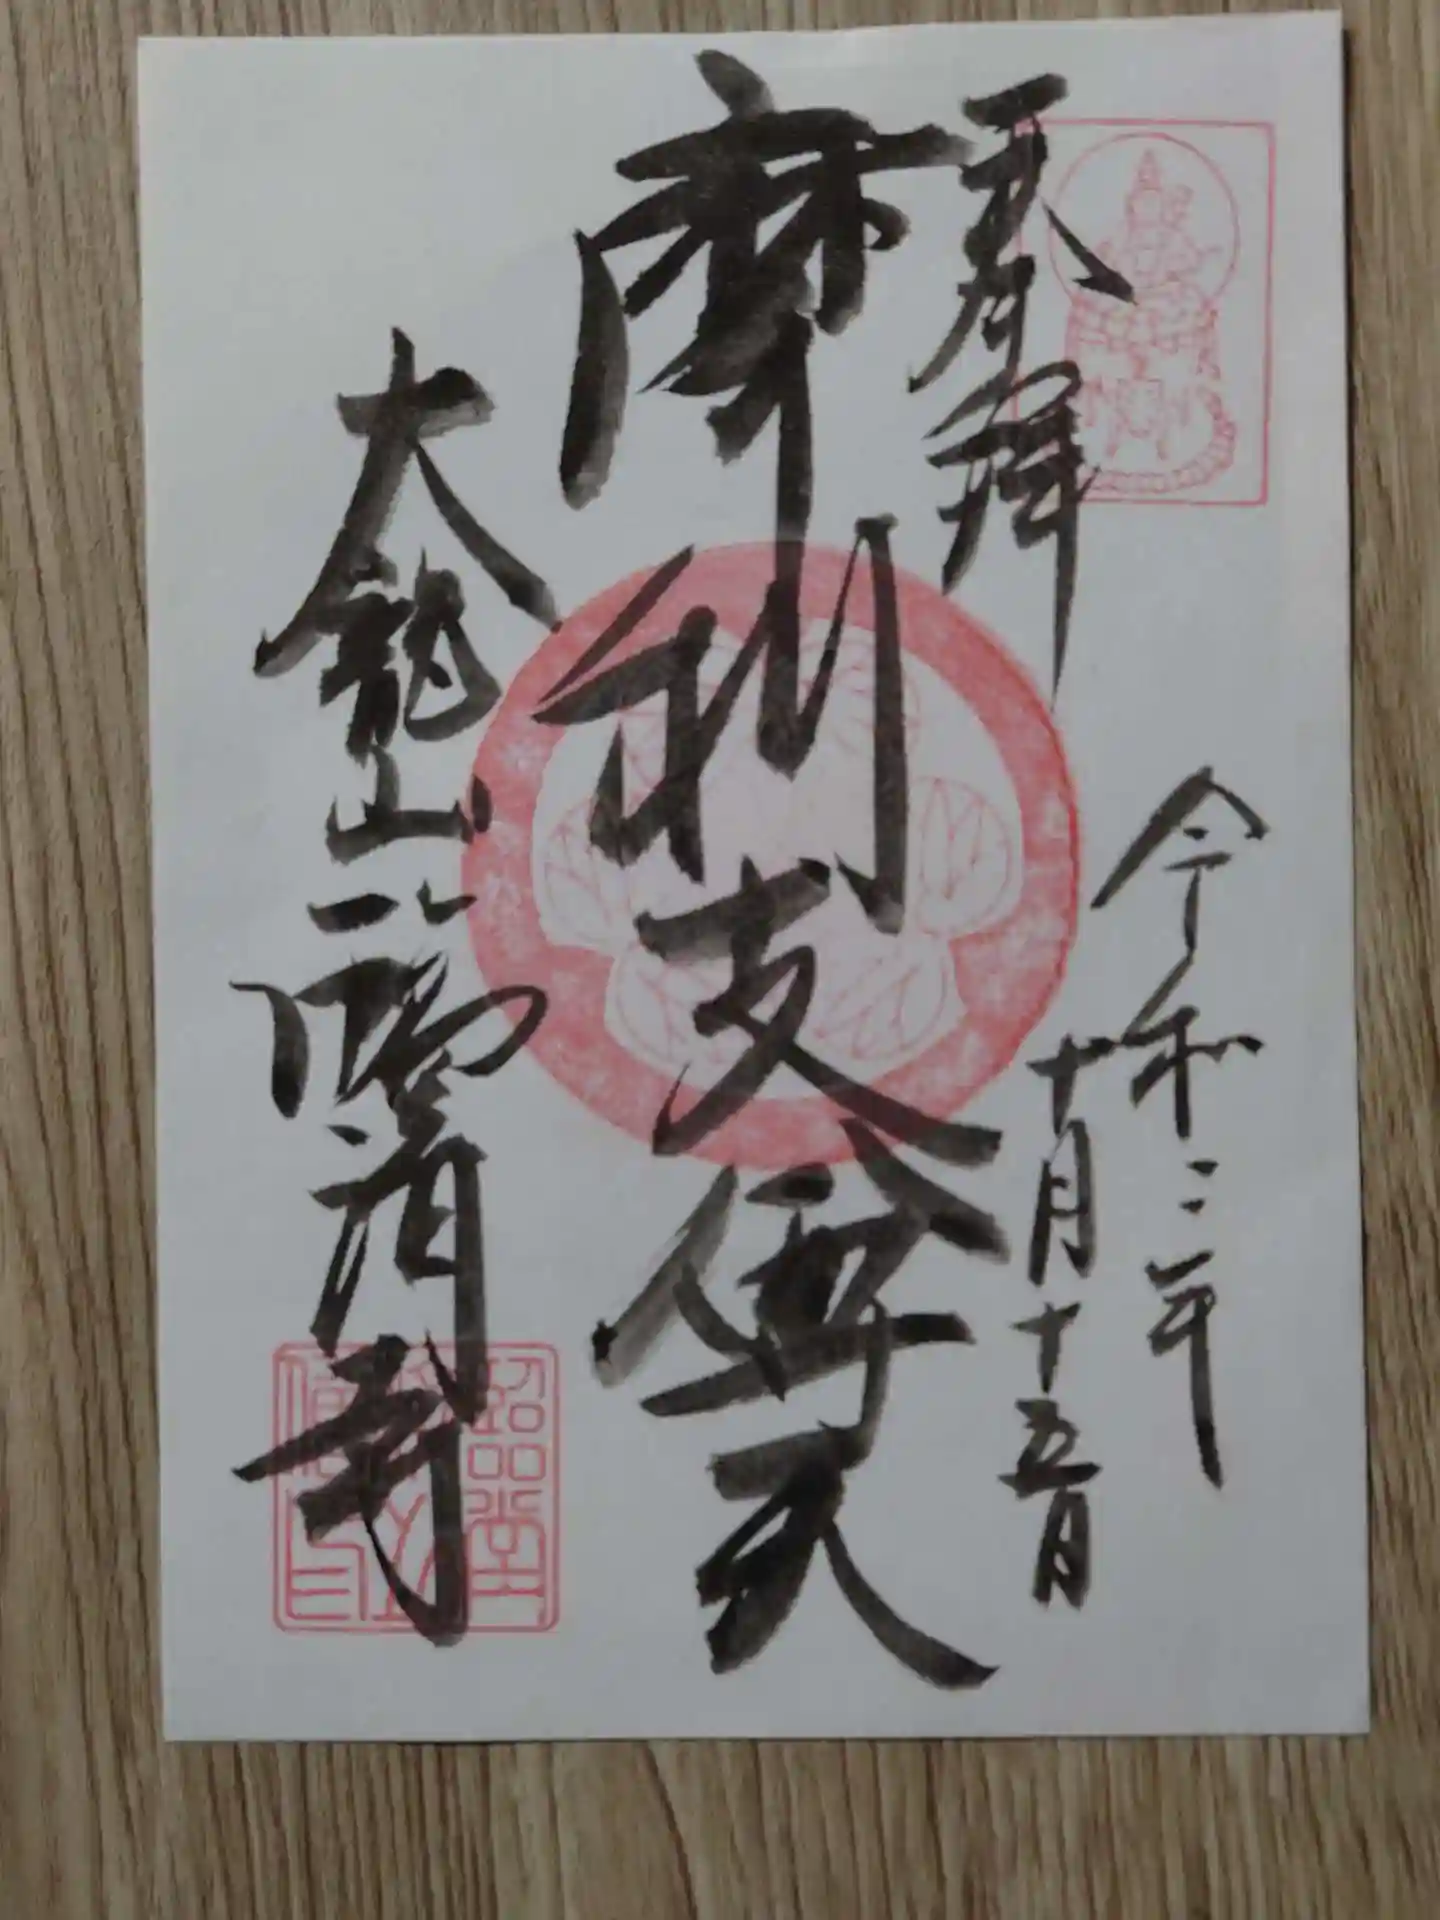 奉拝
令和二年
十月十五日
摩利支尊天
大龍山 臨済寺